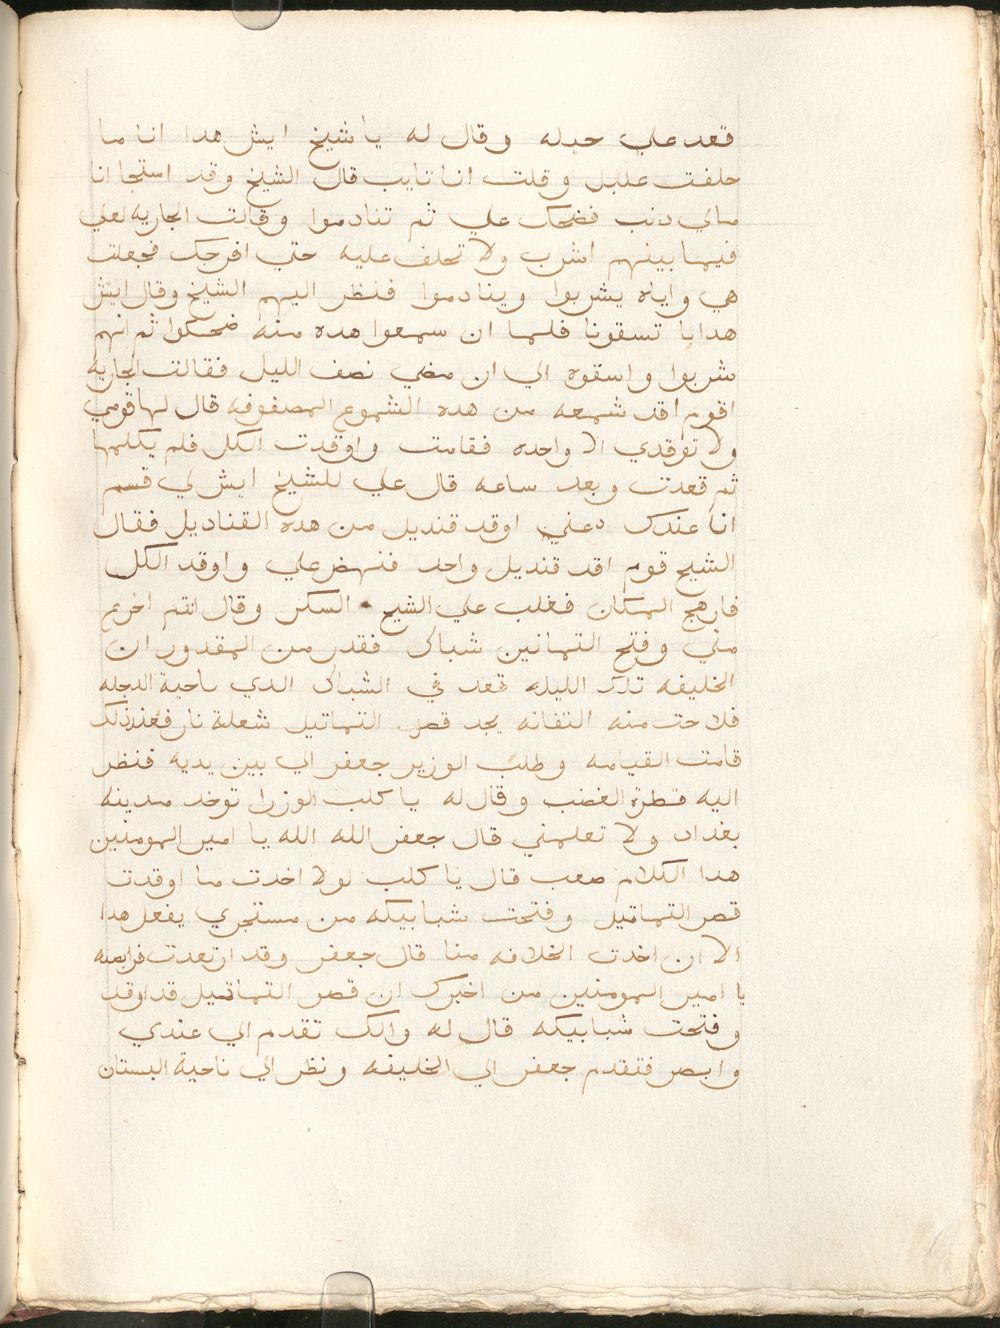 قعد علي حيله وقال له يا شيخ ايش هدا انا ما
حلفت عليك وقلت انا تايب قال الشيخ وقد استحا انا
مالي دنب فضحك علي ثم تنادموا وقالت الجاريه لعلي
فيما بينهم اشرب ولا تحلف عليه حتي افرجك فجعلت
هي واياه يشربوا وينادموا فنظر اليهم الشيخ وقال ايش
هدا يا تسقونا فلما ان سمعوا هده منه ضحكوا ثم انهم
شربوا واسقوه الي ان مضي نصف الليل فقالت الجاريه
اقوم اقد شمعه من هده الشموع المصفوفه قال لها قومي
ولا توقدي الا واحده فقامت واوقدت الكل فلم يكلمها
ثم قعدت وبعد ساعه قال علي للشيخ ايش لي قسم
انا عندك دعني اوقد قنديل من هده القناديل فقال
الشيخ قوم اقد قنديل واحد فنهض علي واوقد الكل
فارهج المكان فغلب علي الشيخ السكر وقال انتم اخرع
مني وفتح التمانين شباك فقدر من المقدور ان
الخليفه تلك الليله قعد في الشباك الدي ناحية الدجله
فلاحت منه التفاته يجد قصر التماتيل شعلة نار فعند ذلك
قامت القيامه وطلب الوزير جعفر الي بين يديه فنظر
اليه نظرة الغضب وقال له يا كلب الوزرا توخد مدينه
بغداد ولا تعلمني قال جعفر الله الله يا امير المومنين
هدا الكلام صعب قال يا كلب لولا اخدت ما اوقدت
قصر التماتيل وفتحت شبابيكه من مستجري يفعل هدا
الا ان اخدت الخلافه منا قال جعفر وقد ارتعدت فرايصه
يا امير المومنين من اخبرك ان قصر التماتيل قد اوقد
وفتحت شبابيكه قال له والك تقدم الي عندي
وابصر فتقدم جعفر الي الخليفه ونظر الي ناحية البستان